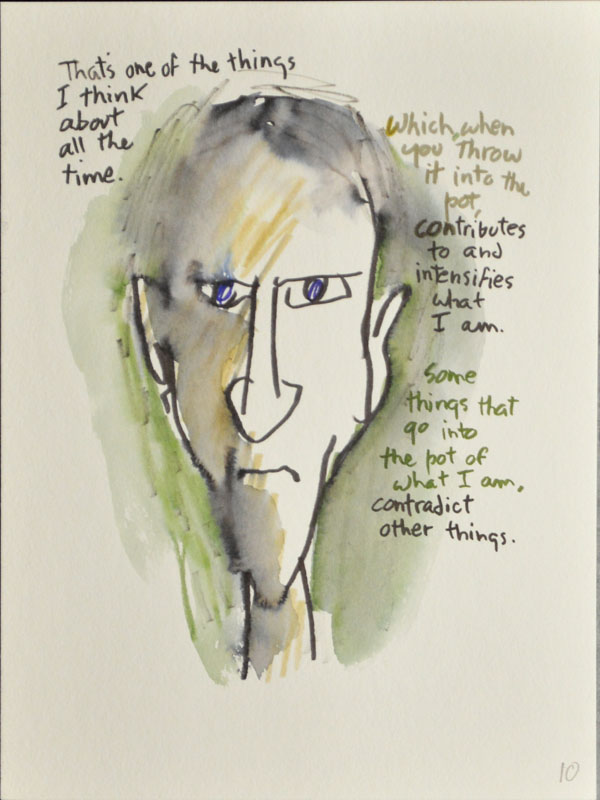 That's one of the things
I think
about
all the
time.
Which, when
you throw
it into the
pot,
contributes
to and
intensifies
what
I am.
Some
things that
go into
the pot of
what I am,
contradict
other things.
10